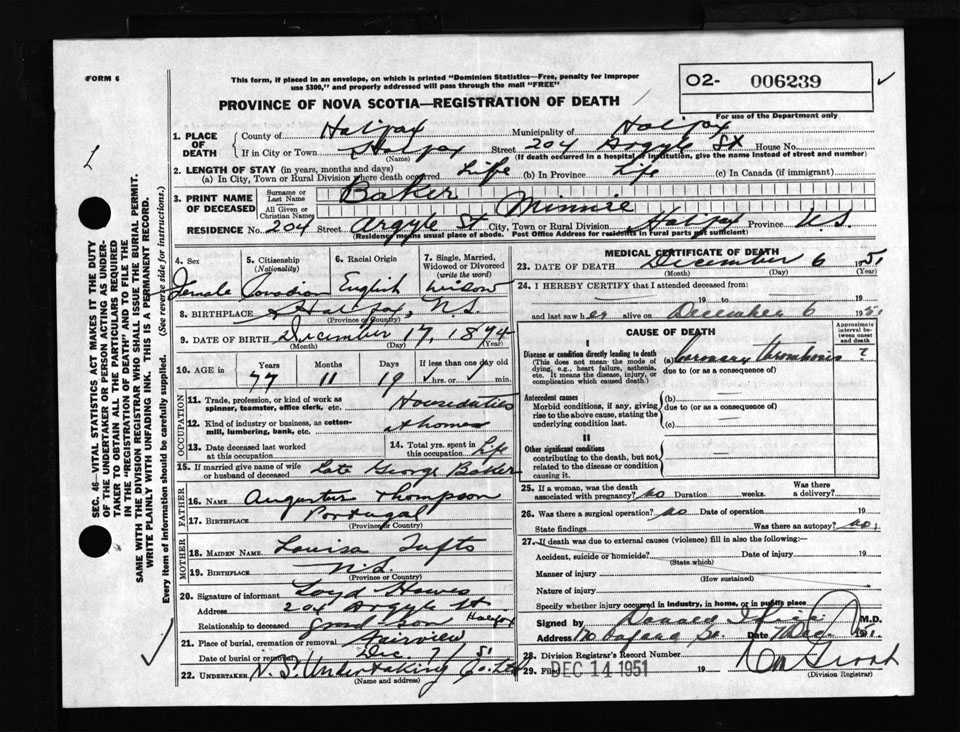 FORM 6
This form, if placed in an envelope, on which is printed "Dominion Statistics—Free, penalty for improper
use $300," and properly addressed will pass through the mail "FREE"
02- 006239
For use of the Department only
PROVINCE OF NOVA SCOTIA—REGISTRATION OF DEATH
1. PLACE OF DEATH County of Halifax Municipality of Halifax
If in City or Town Halifax (Name) Street 204 Argyle St House No.
(If death occurred in a hospital or institution, give the name instead of street and number)
2. LENGTH OF STAY (in years, months and days)
(a) In City, Town or Rural Division where death occurred Life (b) In Province Life (c) In Canada (if immigrant)
3. PRINT NAME OF DECEASED Surname or Last Name Baker
All Given or Christian Names Minnie
RESIDENCE No. 204 Street Argyle St City, Town or Rural Division Halifax Province N.S.
(Residence means usual place of abode. Post Office Address for residents in rural parts not sufficient)
4. Sex Female
5. Citizenship (Nationality) Canadian
6. Racial Origin English
7. Single, Married, Widowed or Divorced (write the word) Widow
8. BIRTHPLACE Halifax, N.S.
(Province or Country)
9. DATE OF BIRTH December 17, 1874
(Month) (Day) (Year)
10. AGE Years 77 Months 11 Days 19 If less than one day old hrs. or min.
OCCUPATION
11. Trade, profession, or kind of work as spinner, teamster, office clerk, etc. Houseduties
12. Kind of industry or business, as cotton-mill, lumbering, bank, etc. At home
13. Date deceased last worked at this occupation
14. Total yrs. spent in this occupation Life
15. If married give name of wife or husband of deceased Late George Baker
FATHER
16. Name Augustus Thompson
17. BIRTHPLACE Portugal
(Province or Country)
MOTHER
18. MAIDEN NAME Louisa Tufts
19. BIRTHPLACE N.S.
(Province or Country)
20. Signature of informant Loyd
Address 204 Argyle St Halifax
Relationship to deceased Grand Son
21. Place of burial, cremation or removal Fairview
Date of burial or removal Dec. 7/51
22. UNDERTAKER N.S. Undertaking Co. Ltd
(Name and address)
MEDICAL CERTIFICATE OF DEATH
23. DATE OF DEATH December 6 1951
(Month) (Day) (Year)
24. I HEREBY CERTIFY that I attended deceased from:
19 to 19
and last saw her alive on December 6 1951
CAUSE OF DEATH
Approximate interval between onset and death
I
Disease or condition directly leading to death
(This does not mean the mode of dying, e.g., heart failure, asthenia, etc. It means the disease, injury, or complication which caused death.)
(a) Coronary thrombosis ?
due to (or as a consequence of)
Antecedent causes
Morbid conditions, if any, giving rise to the above cause, stating the underlying condition last.
(b)
due to (or as a consequence of)
(c)
II
Other significant conditions
contributing to the death, but not related to the disease or condition causing it.
25. If a woman, was the death associated with pregnancy? No Duration weeks. Was there a delivery?
26. Was there a surgical operation? No Date of operation 19
State findings Was there an autopsy? No.
27. If death was due to external causes (violence) fill in also the following:—
Accident, suicide or homicide? Date of injury 19
(State which)
Manner of injury
(How sustained)
Nature of injury
Specify whether injury occurred in industry, in home, or in public place
Signed by Donald M.D.
Address Date 7 Dec 1951.
28. Division Registrar's Record Number
29. Filed DEC 14 1951 19
(Division Registrar)
SEC. 46—VITAL STATISTICS ACT MAKES IT THE DUTY
OF THE UNDERTAKER OR PERSON ACTING AS UNDER-
TAKER TO OBTAIN ALL THE PARTICULARS REQUIRED
IN THE "REGISTRATION OF DEATH" AND TO FILE THE
SAME WITH THE DIVISION REGISTRAR WHO SHALL ISSUE THE BURIAL PERMIT.
WRITE PLAINLY WITH UNFADING INK. THIS IS A PERMANENT RECORD.
Every item of information should be carefully supplied. (See reverse side for instructions.)